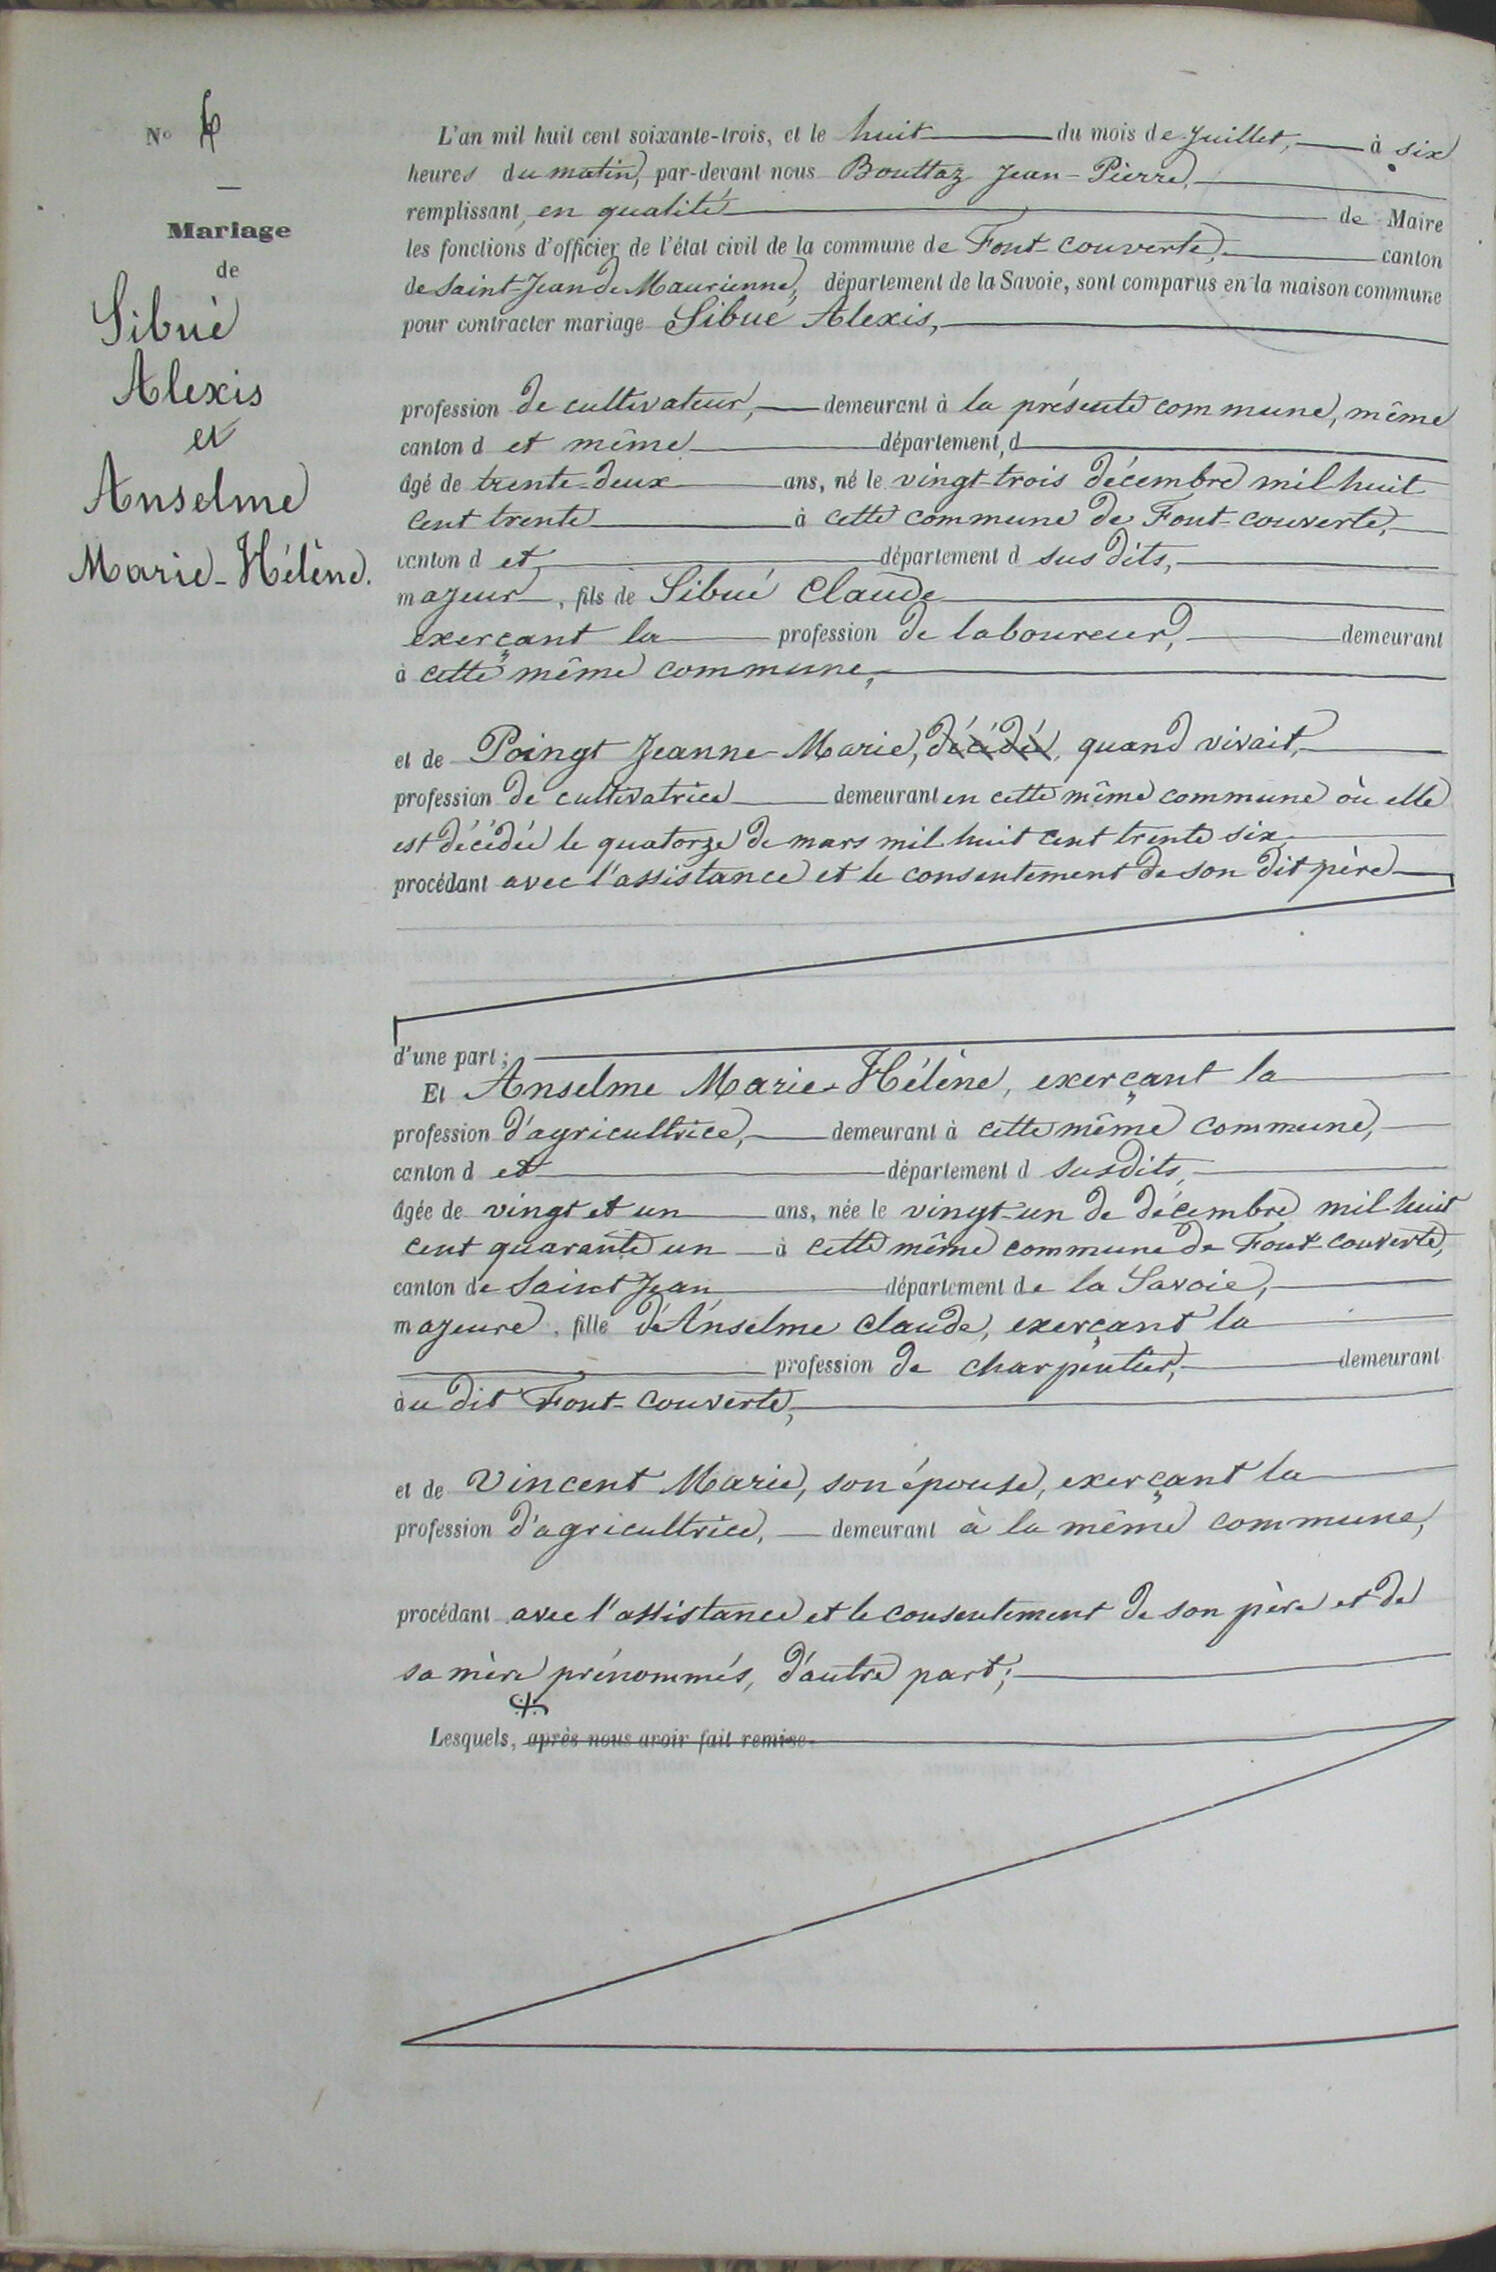 N° 4
Mariage
de
Sibué
Alexis
et
Anselme
Marie-Hélène.
L'an mil huit cent soixante-trois, et le huit du mois de Juillet, à six
heures du matin, par-devant nous Bouttaz Jean-Pierre,
remplissant, en qualité de Maire
les fonctions d'officier de l'état civil de la commune de Font-couverte, canton
de Saint-Jean de Maurienne, département de la Savoie, sont comparus en la maison commune
pour contracter mariage Sibué Alexis,
profession de cultivateur, demeurant à la présente commune, même
canton d et même département, d
âgé de trente-deux ans, né le vingt-trois décembre mil huit
cent trente à cette commune de Font-couverte,
canton d et département d sus dits,
majeur, fils de Sibué Claude
exerçant la profession de laboureur, demeurant
à cette même commune,
et de Poingt Jeanne-Marie, décédée, quand vivait,
profession de cultivatrice demeurant en cette même commune où elle
est décédée le quatorze de mars mil huit cent trente six
procédant avec l'assistance et le consentement de son dit père
d'une part;
Et Anselme Marie-Hélène, exerçant la
profession d'agricultrice, demeurant à cette même commune,
canton d et département d susdits,
âgée de vingt et un ans, née le vingt-un de décembre mil huit
cent quarante un à cette même commune de Font-couverte,
canton de Saint Jean département de la Savoie,
majeure, fille d'Anselme Claude, exerçant la
profession de charpentier, demeurant
àu dit Font-couverte,
et de Vincent Marie, son épouse, exerçant la
profession d'agricultrice, demeurant à la même commune,
procédant avec l'assistance et le consentement de son père et de
sa mère prénommés, d'autre part;
Lesquels, après nous avoir fait remise